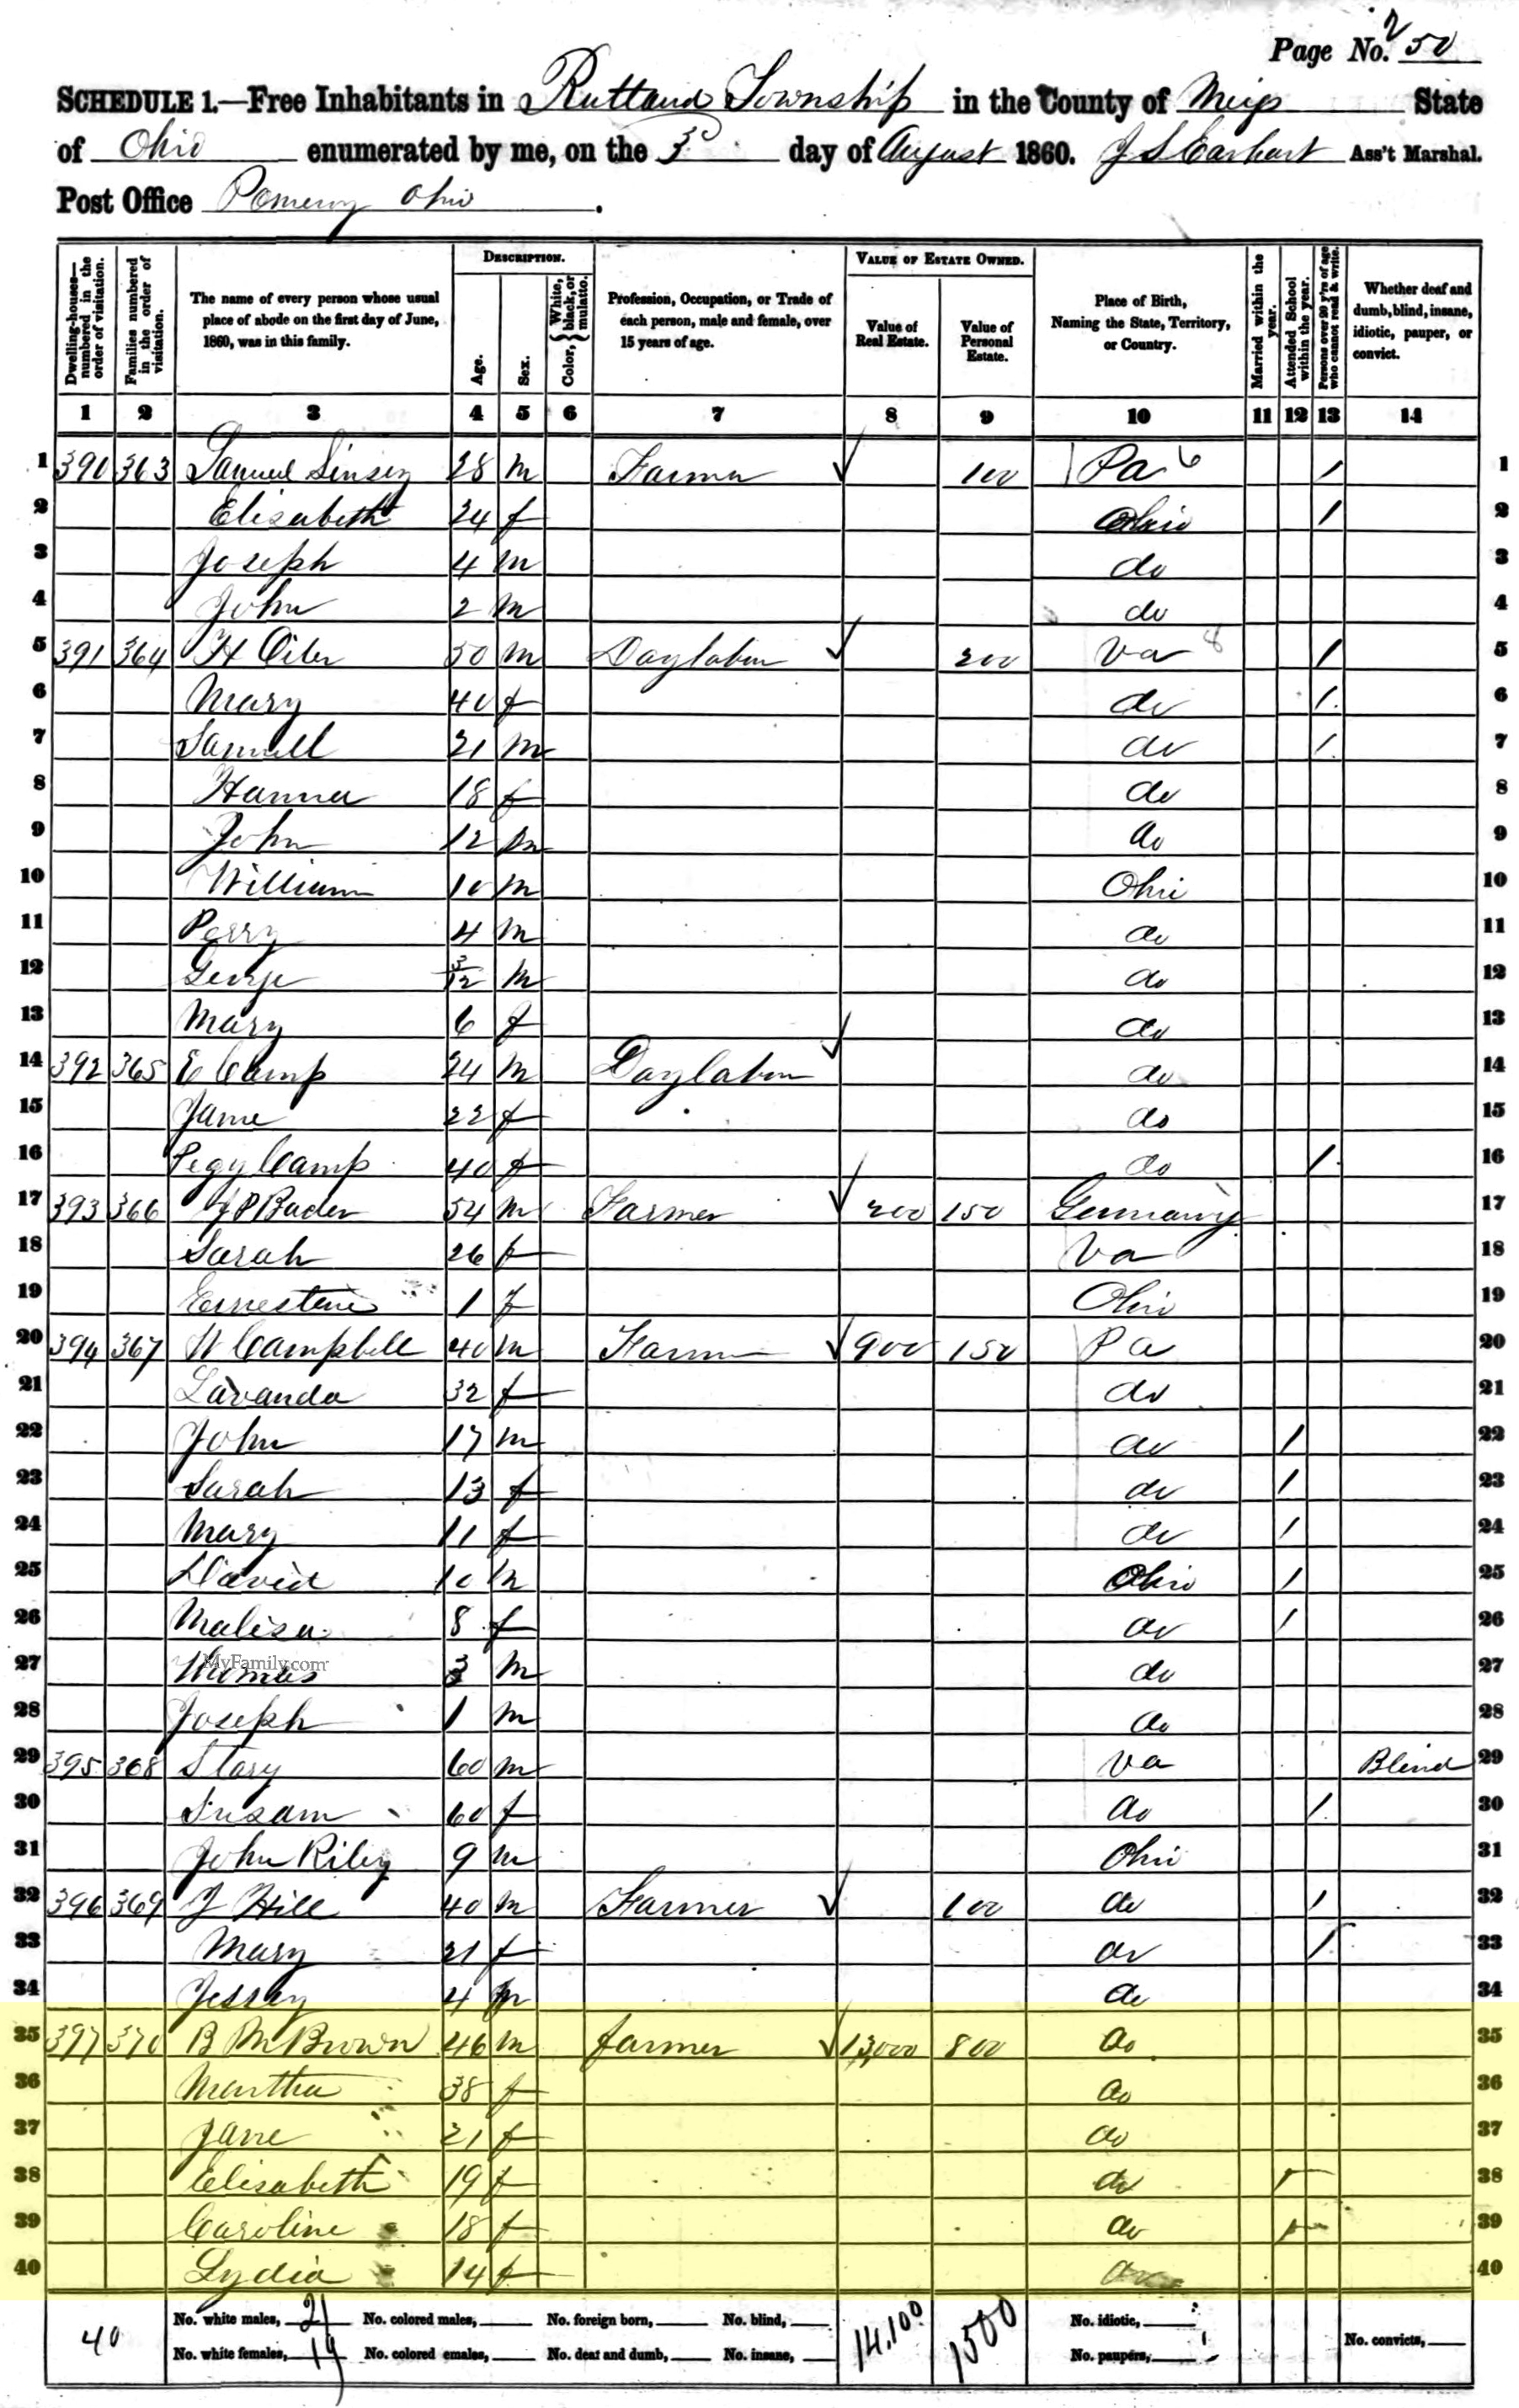 Page No. 250
SCHEDULE 1.—Free Inhabitants in Rutland Township in the County of Meigs State
of Ohio enumerated by me, on the 3d day of August 1860. J S Earhart Ass't Marshal.
Post Office Pomeroy Ohio.
Dwelling-houses—numbered in the order of visitation.
Families numbered in the order of visitation.
The name of every person whose usual place of abode on the first day of June, 1860, was in this family.
DESCRIPTION.
Age.
Sex.
Color, { White, black, or mulatto.
Profession, Occupation, or Trade of each person, male and female, over 15 years of age.
VALUE OF ESTATE OWNED.
Value of Real Estate.
Value of Personal Estate.
Place of Birth, Naming the State, Territory, or Country.
Married within the year.
Attended School within the year.
Persons over 20 y'rs of age who cannot read & write.
Whether deaf and dumb, blind, insane, idiotic, pauper, or convict.
1 2 3 4 5 6 7 8 9 10 11 12 13 14
1 390 363 Samuel 28 m Farmer 100 Pa 6 / 1
2 Elisabeth 24 f Ohio / 2
3 Joseph 4 m do 3
4 John 2 m do 4
5 391 364 H 50 m Daylaborer 200 Va 8 / 5
6 Mary 40 f do / 6
7 Samuell 21 m do / 7
8 Hanna 18 f do 8
9 John 12 m do 9
10 William 10 m Ohio 10
11 Perry 4 m do 11
12 George 3/12 m do 12
13 Mary 6 f do 13
14 392 365 E Camp 24 m Daylaborer do 14
15 Jane 22 f do 15
16 Pegy Camp 40 f do / 16
17 393 366 J P Bader 54 m Farmer 200 150 Germany 17
18 Sarah 26 f Va 18
19 Ernestine 1 f Ohio 19
20 394 367 W Campbell 40 m Farmer 900 150 Pa 20
21 Lavanda 32 f do 21
22 John 17 m do / 22
23 Sarah 13 f do / 23
24 Mary 11 f do / 24
25 David 10 m Ohio / 25
26 Malisa 8 f do / 26
27 Thomas 3 m do 27
MyFamily.com
28 Joseph 1 m do 28
29 395 368 Stary 60 m Va Blind 29
30 Susam 60 f do / 30
31 John Riley 9 m Ohio 31
32 396 369 J Hill 40 m Farmer 100 do / 32
33 Mary 21 f do / 33
34 Jessey 4 m do 34
35 397 370 B M Brown 46 m farmer 13,000 800 do 35
36 Martha 38 f do 36
37 Jane 21 f do 37
38 Elisabeth 19 f do 38
39 Caroline 18 f do 39
40 Lydia 14 f do 40
40
No. white males, 21 No. colored males, No. foreign born, No. blind, 14.100 1500 No. idiotic,
No. white females, 19 No. colored emales, No. deaf and dumb, No. insane, No. paupers, No. convicts,